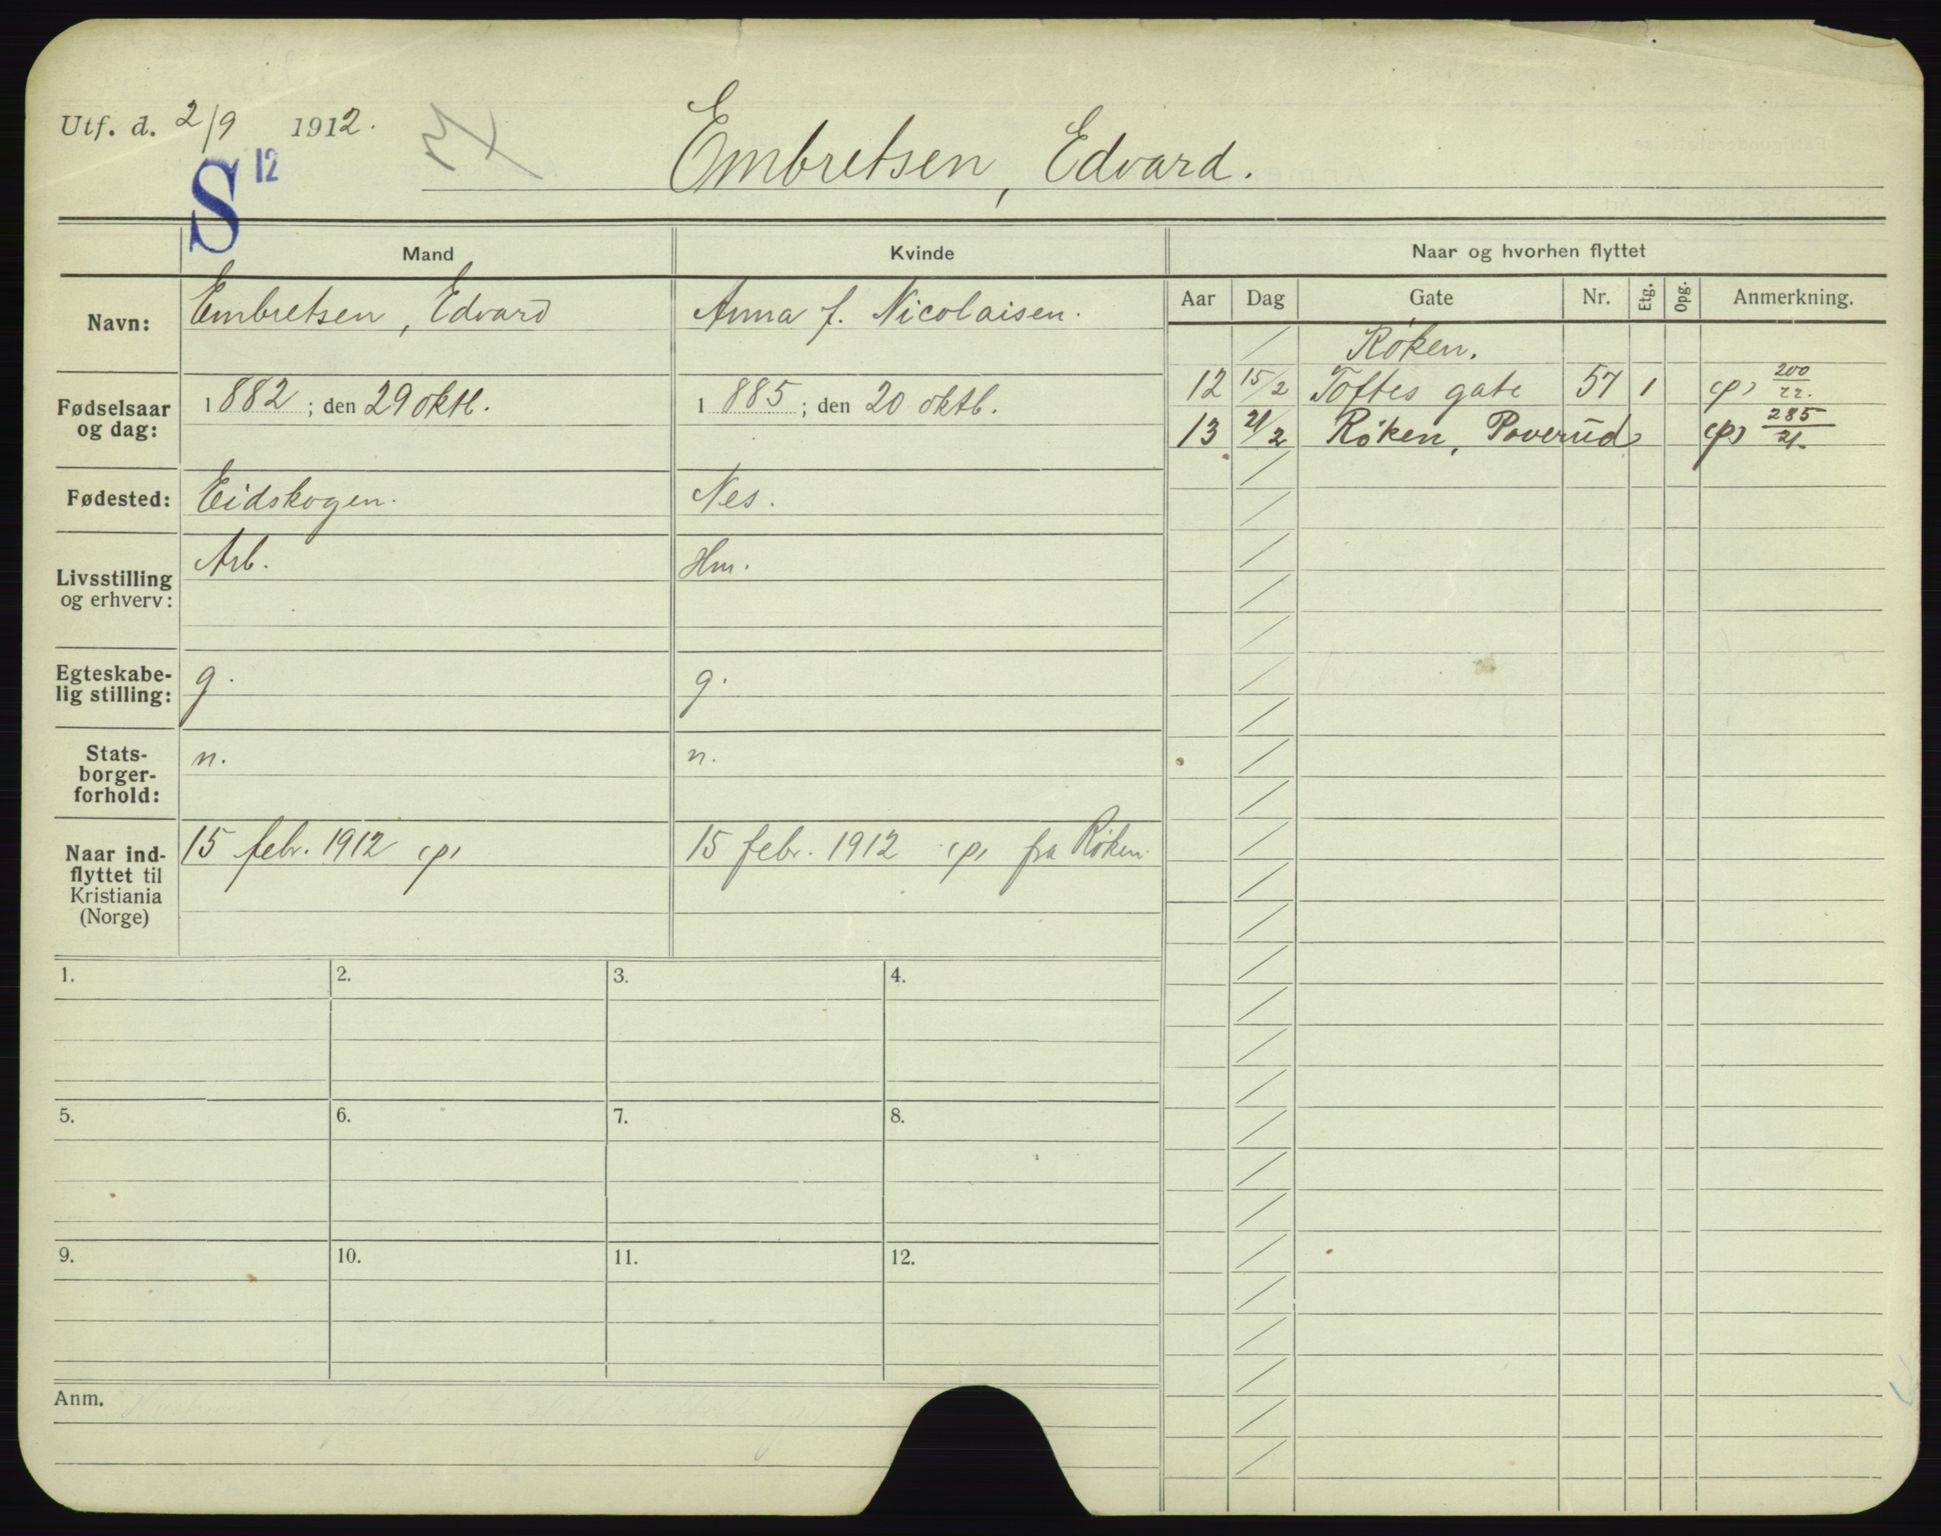 Utf. d. 2/9 1912.
S 12
Embretsen, Edvard.
Mand Kvinde Naar og hvorhen flyttet
Aar Dag Gate Nr. Etg. Opg. Anmerkning.
Navn: Embretsen, Edvard Anna f. Nicolaisen.
Fødselsaar og dag: 1882; den 29 oktb. 1885; den 20 oktb.
Fødested: Eidskogen. Nes.
Livsstilling og erhverv: Arb. Hm.
Egteskabe-
lig stilling: g. g.
Stats-
borger-
forhold: n. n.
Naar ind-
flyttet til
Kristiania
(Norge) 15 febr. 1912 (p) 15 febr. 1912 (p) fra Røken.
Røken.
12 15/2 Toftes gate 57 1 (p) 200/22.
13 21/2 Røken, Poverud (p) 285/21.
1. 2. 3. 4.
5. 6. 7. 8.
9. 10. 11. 12.
Anm.